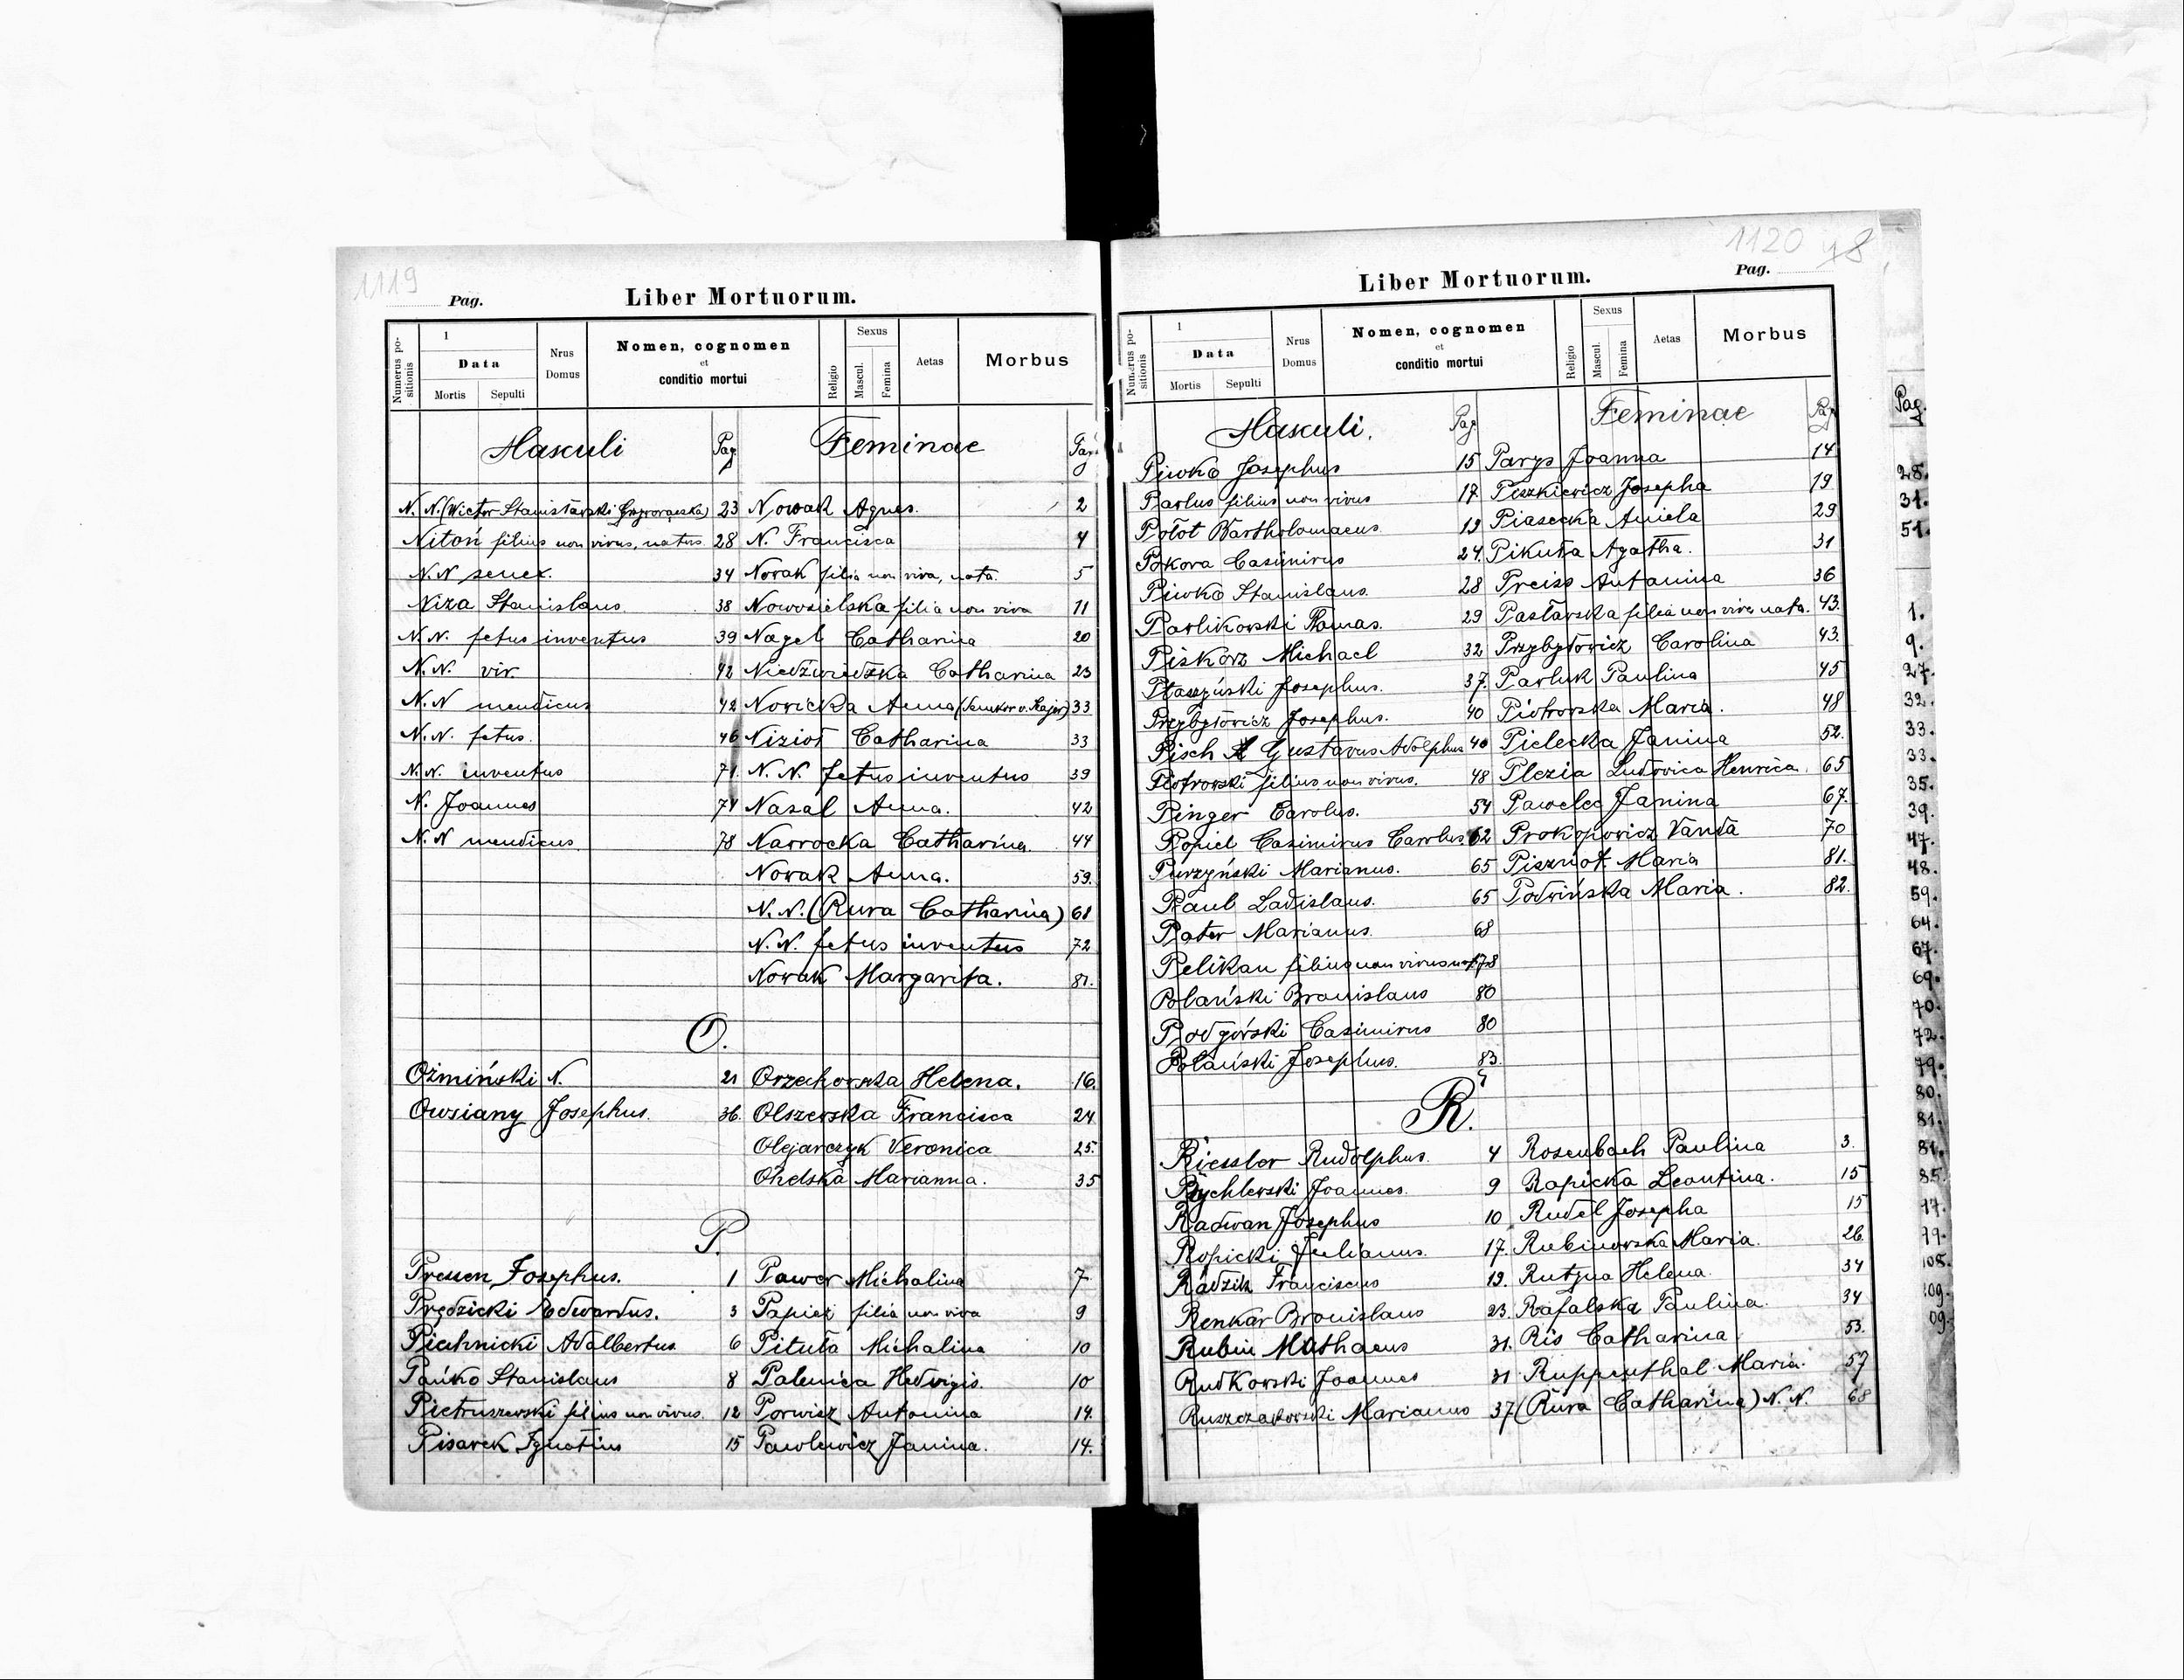 1119
Pag.
Liber Mortuorum.
Numerus positionis
1
Data
Mortis
Sepulti
Nrus Domus
Nomen, cognomen
et
conditio mortui
Religio
Sexus
Mascul.
Femina
Aetas
Morbus
Masculi Pag. Feminae Pag.
N. N. (Wictor Stanisławski 23 Nowak Agnes. 2
Nitoń filius non vivus, natus 28 N. Francisca 4
N.N senex. 34 Nowak filia non viva, nata. 5
Niza Stanislaus 38 Nowosielska filia non viva 11
N.N. fetus inventus 39 Nagel Catharina 20
N.N. vir. 42 Niedźwiedzka Catharina 23
N.N mendicus 42 Nowicka Anna 33
N.N. fetus. 46 Nizioł Catharina 33
N.N. inventus 71. N.N. fetus inventus 39
N. Joannes 74 Nazal Anna. 42
N.N mendicus 78 Nawrocka Catharina 44
Nowak Anna. 59.
N.N. (Rura Catharina) 68
N.N. fetus inventus 72
Nowak Margarita. 81.
O.
Ożmiński N. 21 Orzechowska Helena. 16.
Owsiany Josephus. 36. Olszewska Francisca 24
Olejarczyk Veronica 25.
Marianna. 35
P.
Josephus. 1 Pawer Michalina 7
Prędzicki Edwardus. 3 Papież filia non viva 9
Piechnicki Adalbertus 6 Pituła Michalina 10
Pańko Stanislaus 8 Palenica Hedvigis. 10
Pietruszewski filius non vivus. 12 Porwisz Antonina 14.
Pisarek Ignatius 15 Pawlewicz Janina. 14.
1120 48
Liber Mortuorum.
Pag.
Numerus positionis
1
Data
Mortis
Sepulti
Nrus Domus
Nomen, cognomen
et
conditio mortui
Religio
Sexus
Mascul.
Femina
Aetas
Morbus
Masculi. Pag. Feminae Pag.
Piwko Josephus 15 Parys Joanna 14
Pawlus filius non vivus 17 Piszkiewicz Josepha 19
Połot Bartholomaeus 19 Piasecka Aniela 29
Pokora Casimirus 24. Pikuła Agatha. 31
Piwko Stanislaus 28 Preiss Antonina 36
Pawlikowski Thomas. 29 Pasławska filia non viva nata. 43.
Piskorz Michael 32 Przybyłowicz Carolina 43.
Ptaszyński Josephus. 37. Pawluk Paulina 45
Przybyłowicz Josephus. 40 Piotrowska Maria. 48
Pisch Gustavus Adolphus 40 Pielecka Janina 52.
Piotrowski filius non vivus. 48 Plezia Ludovica Henrica. 65
Pinger Carolus. 54 Pawelec Janina 67.
Popiel Casimirus Carolus 62 Prokopowicz Vanda 70
Purzyński Marianus. 65 Maria 81.
Paul Ladislaus. 65 Podwińska Maria. 82.
Pater Marianus. 68
Pelikan filius non vivus 78
Polański Bronislaus 80
Podgórski Casimirus 80
Polański Josephus. 83.
R.
Riessler Rudolphus. 4 Rosenbach Paulina 3.
Rychlewski Joannes. 9 Rapicka Leontina. 15
Radwan Josephus 10 Rudel Josepha 15
Ropicki Julianus. 17. Rubinowska Maria. 26
Radzik Franciscus 19. Rutyna Helena. 34
Renkar Bronislaus 23. Rafalska Paulina. 34
Rubin Mathaeus 31. Ris Catharina 53.
Rudkowski Joannes 31 Ruppenthal Maria. 57
Marianus 37 (Rura Catharina) N.N. 68
Pag.
28.
31.
51.
1.
9.
27.
32.
33.
33.
35.
39.
47.
48.
59.
64.
67.
69.
70.
72.
79.
80.
81.
81.
85.